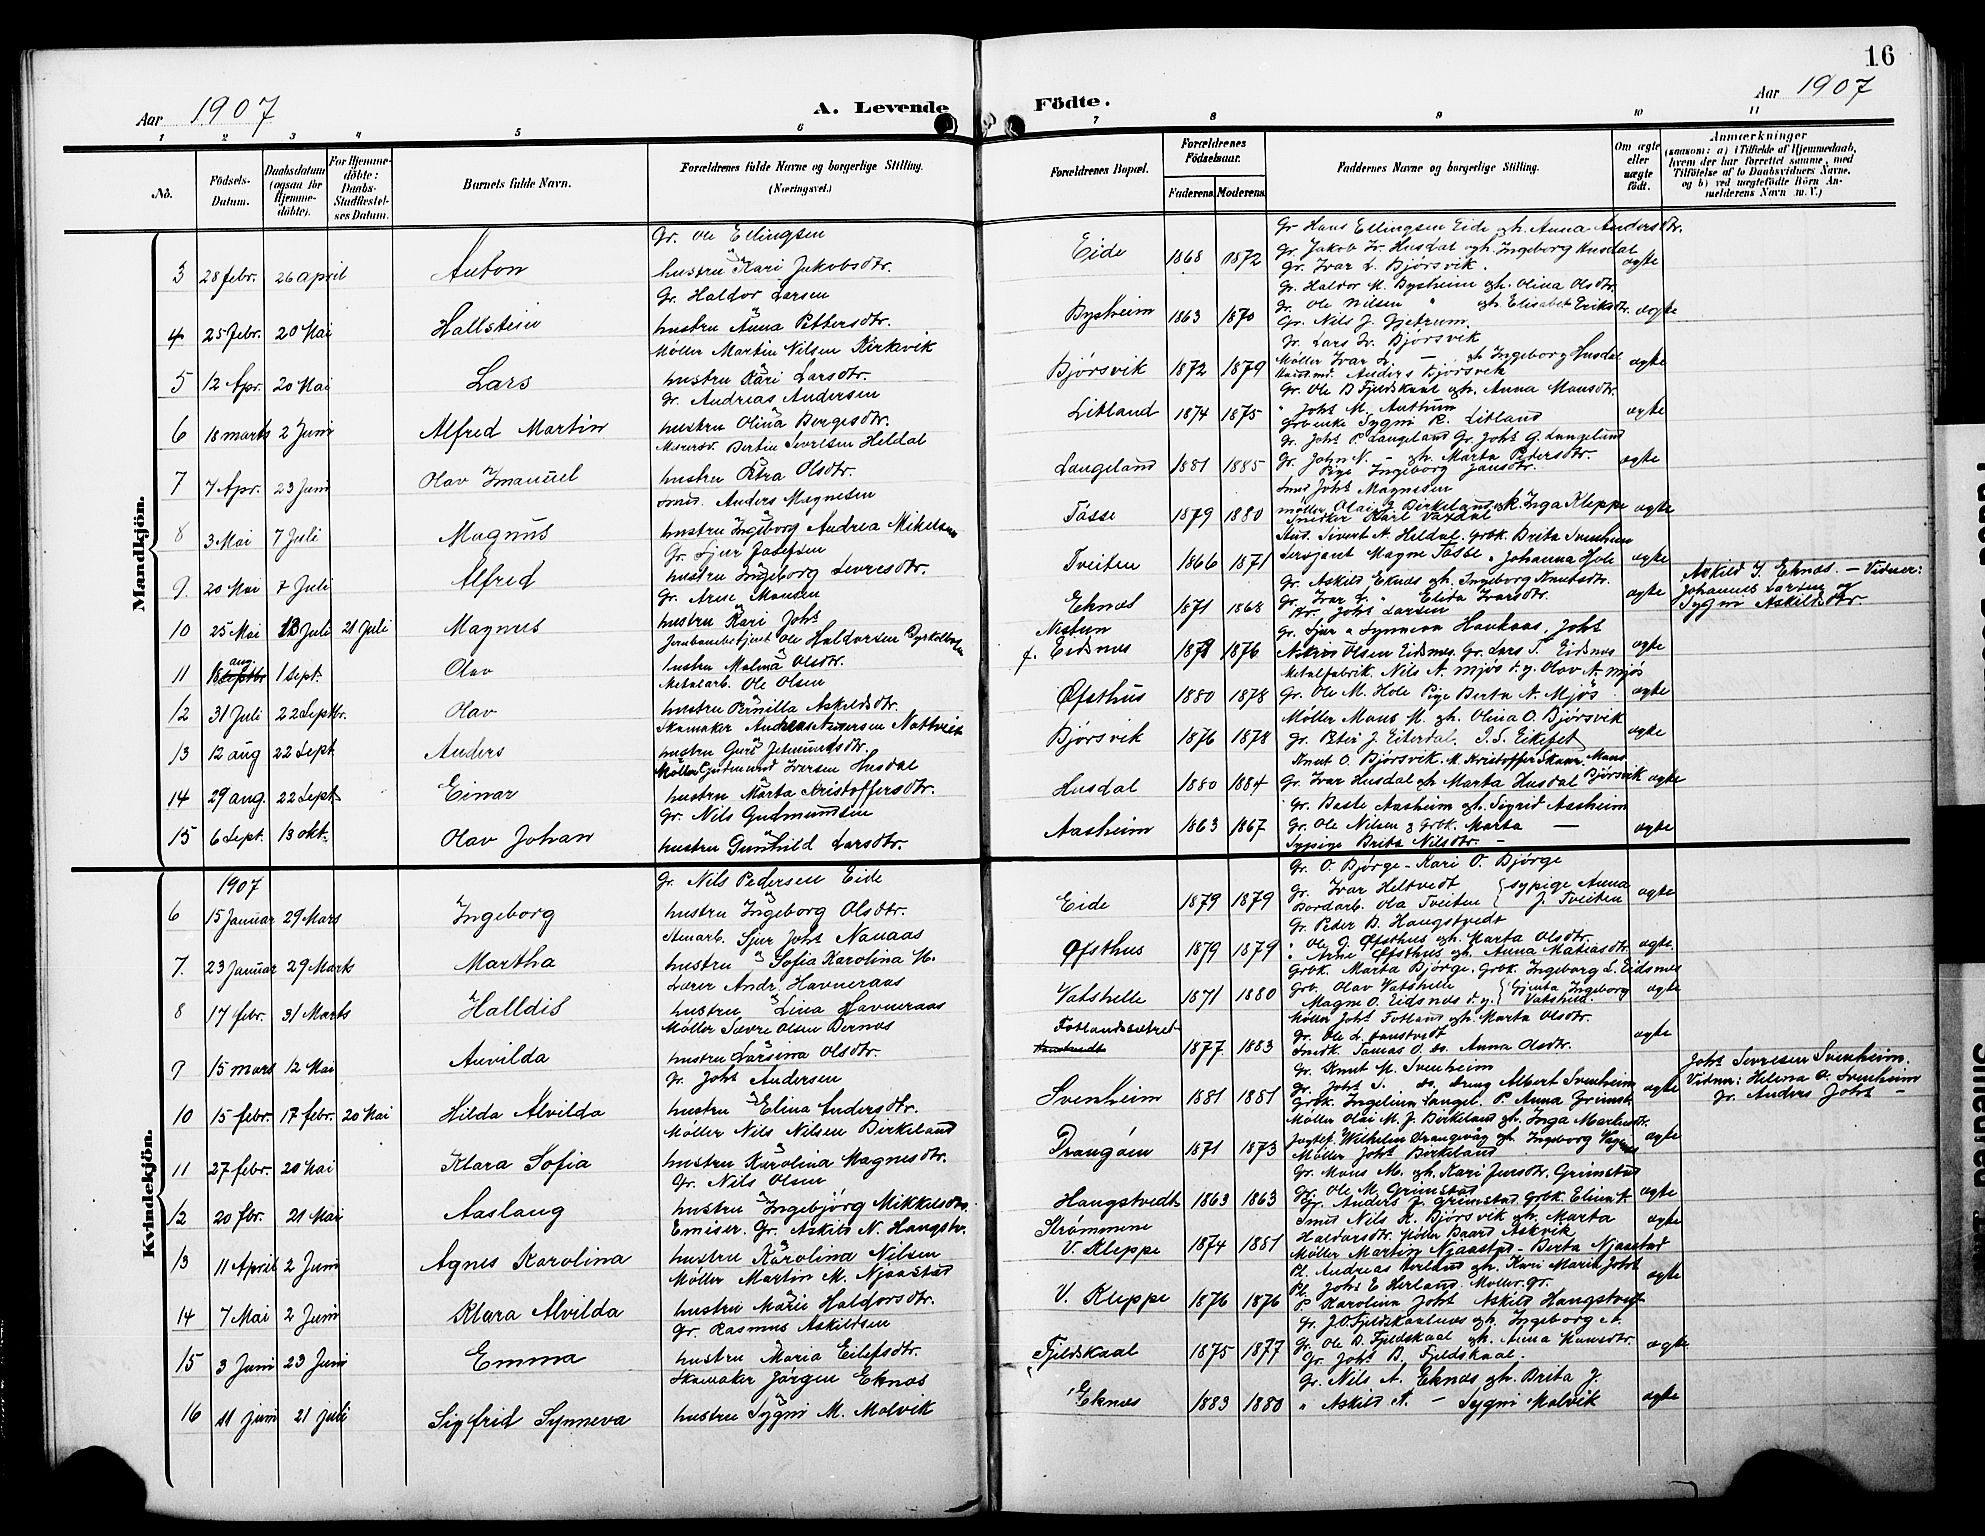 16
Aar 1907
A. Levende
Födte.
Aar 1907
1 2 3 4 5 6 7 8 9 10 11
No.
Födsels-Datum.
Daabsdatum (ogsaa for Hjemme-döbte).
For Hjemme-döbte: Daabs-Stadfæstel-ses Datum.
Barnets fulde Navn.
Forældrenes fulde Navne og borgerlige Stilling. (Næringsvei.)
Forældrenes Bopæl.
Forældrenes Födselsaar.
Faderens. Moderens.
Faddernes Navne og borgerlige Stilling.
Om ægte eller uægte födt.
Anmærkninger
(saasom: a) i Tilfælde af Hjemmedaab, hvem der har forrettet samme, med Tilföielse af to Daabsvidners Navne, og b) ved uægtefödte Börn An-melderens Navn m. V.)
Mandkjön.
3 28 febr. 26 april Anton Gr. Ole Ellingsen hustru Kari Jakobsdtr. Eide 1868 1872 Gr. Hans Ellingsen Eide oh. Anna Andersdtr. Gr. Jakob Iv. Husdal oh. Ingeborg Husdal Gr. Ivar L. Bjørsvik. ægte
4 25 febr. 20 Mai Hallstein Gr. Haldor Larsen hustru Anna Pettersdtr. Bysheim 1863 1870 Gr. Haldor M. Bysheim oh. Olina Olsdtr. Gr. Ole Nilsen " oh. Elisabet Eriksdtr. Gr. Nils J. Gjetrum. ægte
5 12 Apr. 20 Mai Lars Møller Martin Nilsen Kirkevik hustru Kari Larsdtr. Bjørsvik 1872 1879 Gr. Lars Iv. Bjørsvik Møller Ivar L. — oh Ingeborg Husdal Anders Bjørsvik ægte
6 18 marts 2 Juni Alfred Martin Gr. Andreas Andersen hustru Olina Børgesdtr. Litland 1874 1875 Gr. Ole B Fjeldskaal oh. Anna Monsdtr. " Johs M. Sygni R. Litland ægte
7 7 Apr. 23 Juni Olav Imanuel Bertin Sevresen Heldal hustru Petra Olsdtr. Langeland 1881 1885 Gr. Johs P. Langeland Gr. Johs G. Langeland Gr. John N. — oh. Marta Pedersdtr. Pige Ingeborg Jansdtr. ægte
8 3 Mai 7 Juli Magnus Smed. Anders Magnesen hustru Ingeborg Andrea Mikelsen Tosse 1879 1880 Smed Johs Magnesen møller Olai J. Birkeland oh. Inga Kleppe Snedker Karl Vaxdal ægte
9 20 Mai 7 Juli Alfred Gr. Sjur Josefsen hustru Ingeborg Sevresdtr. Tveiten 1866 1871 Sivert N. Heldal. Grbk. Brita Svenheim Sersjant Magne Tosse, Johanna Hole ægte
10 25 Mai 13 Juli 21 Juli Magnus Gr. Arne Monsen hustru Kari Johs Eknæs 1871 1868 Gr. Askild Eknæs oh. Ingeborg Knutsdtr. Gr. Ivar L. " Elida Ivarsdtr. Gr. Johs Larsen ægte Askild J. Eknæs. — Vidner: Johannes Larsen og Sygni Askildsdtr.
11 18 aug 1 Sept. Olav Jernbanebetjent Ole Haldorsen hustru Malina Olsdtr. Nestun f. Eidsnes 1878 1876 Gr. Sjur o Synneva Havkaas, Johs Olsen Eidsnes. Gr. Lars T. Eidsnes ægte
12 31 Juli 22 Septbr. Olav Metalarb. Ole Olsen hustru Pernilla Askildsdtr. Øfsthus 1880 1878 Metalfabrik. Nils A. mjøs d.y. Olav A. mjøs Gr. Ole M. Hole Pige Berta A. Mjøs ægte
13 12 aug 22 Sept Anders Skomaker Andreas Andersen Nottveit hustru Guri Jetmundsdtr. Bjørsvik 1876 1878 Møller Mons M. oh. Olina O. Bjørsvik Gr. Peter J. Eiterdal. J. S. Eikefet ægte
14 29 aug. 22 Sept Einar Møller Gudmund Iversen Husdal hustru Marta Kristoffersdtr. Husdal 1880 1884 Knut O. Bjørsvik. M. Kristoffer Skaar. Mons Gr. Ivar Husdal oh Marta Husdal Bjørsvik ægte
15 6 Sept. 13 okt. Olav Johan Gr. Nils Gudmundsen hustru Gunhild Larsdtr. Aasheim 1863 1867 Gr. Beste Aasheim oh. Sigrid Aasheim Gr. Ole Nilsen g Grbk. Marta — Sypige Brita Nilsdtr. — ægte
Kvindekjön.
1907
6 15 Januar 29 Mars Ingeborg Gr. Nils Pedersen Eide hustru Ingeborg Olsdtr. Eide 1879 1879 Gr. O. Bjørge - Kari O. Bjørge Gr. Ivar Heltvedt Bordarb. Ola Tveiten sypige Anna J. Tveiten ægte
7. 23 Januar 29 Marts Martha Stenarb. Sjur Johs Navaas hustru Sofia Karolina M. Øfsthus 1879 1879 Gr. Peder B. Haugstvedt " Ole J. Øfsthus oh. Marta Olsdtr. " Arne Øfsthus oh. Anna Matiasdtr. ægte.
8 17 febr. 31 Marts Halldis Lærer Andr. Havneraas hustru Lina Havneraas Vatshelle 1871 1880 Grbk. Marta Bjørge. Grbk. Ingeborg L. Eidsnes Grb. Olav Vatshelle Magne O. Eidsnes d.y. Gjenta Ingeborg Vatshell. ægte
9 15 mars 12 Mai Anvilda Møller Sævre Olsen Bernæs hustru Larsina Olsdtr. Fotlandssætret 1877 1883 Møller Johs Fotland oh. Marta Olsdtr. Gr. Ole L. Snedk. Tomas O. do. Anna Olsdtr. ægte
10 15 febr. 17 febr. 20 Mai Hilda Alvilda Gr. Johs Andersen hustru Elina Andersdtr. Svenheim 1881 1881 Gr. Knut M. Svenheim Gr. Johs S. do. Dreng Albert Svenheim Grbk. Ingelina Langel. P. Anna Grimst. ægte Johs Sevresen Svenheim. Vidner: Helena O. Svenheim Gr. Anders Johs —
11 27 febr. 20 Mai Klara Sofia Møller Nils Nilsen Birkeland hustru Karolina Magnesdtr. Drangøen 1871 1873 Møller Olai M. J. Birkeland oh. Inga Wilhelm Drangevåg oh. Ingeborg Møller Johs Birkeland ægte
12 20 fbr. 21 Mai Aaslaug Gr. Nils Olsen hustru Ingebjørg Mikkelsdtr. Haugstvedt 1863 1863 Gr. Mons M. oh. Kari Jensdtr. Grimstad Gr. Ole M. Grimstad Gr. Anders J. Grimstad Grbk. Elina A. ægte
13 11 April 2 Juni Agnes Karolina Emiser. Gr. Askild N. Haugstv. hustru Karolina Nilsen Strømmene V. Kleppe 1874 1881 Smed Nils K. Bjørsvik oh. Marta Haldorsdtr. Møller Baard Askvik Møller Martin Njaastad - Berta Njaastad ægte
14 7 Mai 2 Juni Klara Alvilda Møller Martin M. Njaastad hustru Marie Haldorsdtr. V. Kleppe 1876 1876 Pl. Andreas Herland oh. Kari Marie Johs Pl. Johs E Herland. Møller. gr. P Karolina Johs Askild Haugstvedt ægte
15 3 Juni 23 Juni Emma Gr. Rasmus Askildsen hustru Maria Eilefsdtr. Fjeldskaal 1875 1877 Gr. J. O. Fjeldskaalnes oh. Ingeborg A. Gr. Ole B. Fjeldskaal oh. Anna Monsdtr. Gr. Johs B. Fjeldskaal. ægte
16 11 juni 21 juli Sigfrid Synneva Skomaker Jørgen Eknæs hustru Sygni M. Molvik Eknæs 1883 1880 Gr. Nils A. Eknæs oh. Brita J. " Askild A. — Sygni Molvik ægte